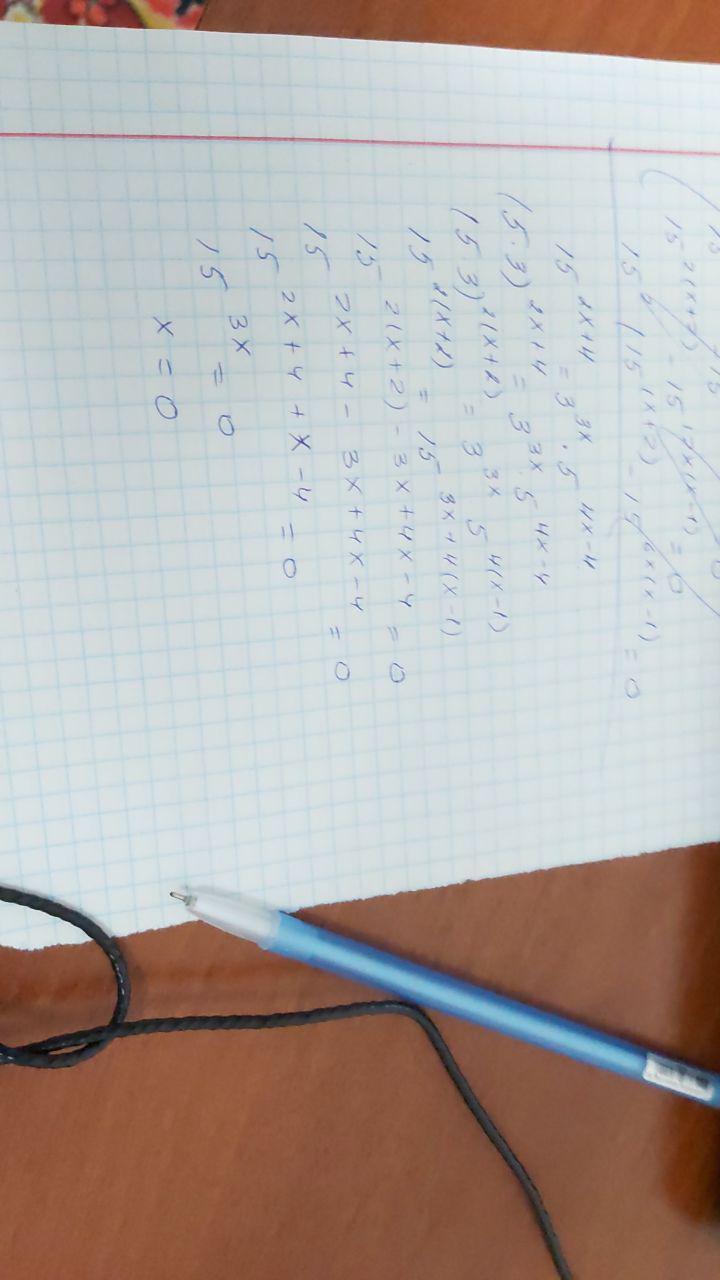 15^{2(x+2)} - 15^{12x(x-1)} = 0
15 (15^{(x+2)} - 15^{6x(x-1)} = 0
15^{2x+4} = 3^{3x} · 5^{4x-4}
(5·3)^{2x+4} = 3^{3x} · 5^{4x-4}
(5·3)^{2(x+2)} = 3^{3x} 5^{4(x-1)}
15^{2(x+2)} = 15^{3x+4(x-1)}
15^{2(x+2)-3x+4x-4} = 0
15^{2x+4-3x+4x-4} = 0
15^{2x+4+x-4} = 0
15^{3x} = 0
x = 0